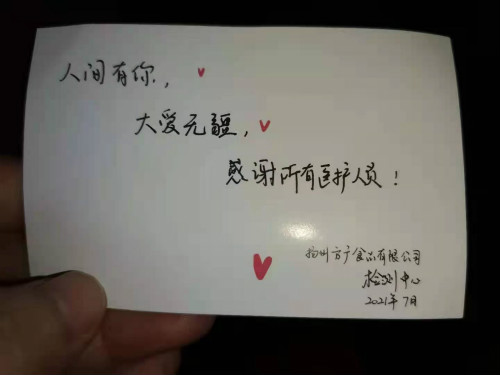 人间有你，
大爱无疆，
感谢所有医护人员！
扬州方广食品有限公司
检测中心
2021年7月